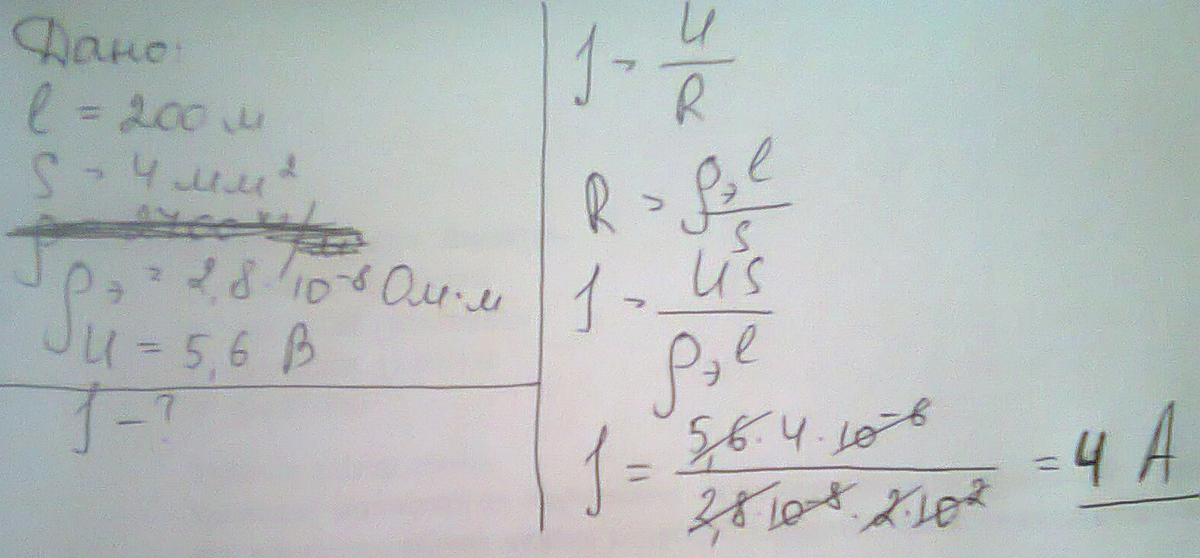 Дано:
l = 200 м
S = 4 мм²
ρэ = 2,8 · 10⁻⁸ Ом·м
U = 5,6 В
J - ?
J = U/R
R = ρэl/S
J = US/ρэl
J = 5,6 · 4 · 10⁻⁶ / 2,8 · 10⁻⁸ · 2 · 10² = 4 A